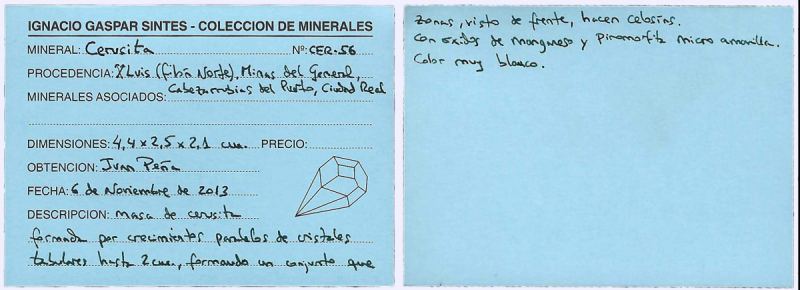 IGNACIO GASPAR SINTES - COLECCION DE MINERALES
MINERAL: Cerusita Nº: CER-56
PROCEDENCIA: Luis (Filón Norte), Minas del General,
MINERALES ASOCIADOS: Cabezarrubias del Puerto, Ciudad Real
DIMENSIONES: 4,4 x 2,5 x 2,1 cm. PRECIO:
OBTENCION: Juan Peña
FECHA: 6 de Noviembre de 2013
DESCRIPCION: masa de cerusita
formada por crecimientos paralelos de cristales
tabulares hasta 2 cm., formando un conjunto que
zonas, visto de frente, hacen celosías.
Con óxidos de manganeso y Piromorfita micro amarilla.
Color muy blanco.